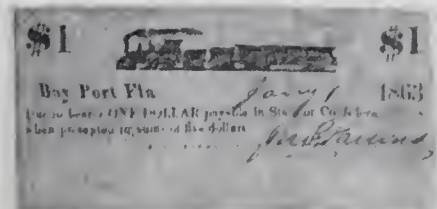 $1 $1
Bay Port Fla Jany 1 1863
Due to bearer ONE DOLLAR payable in State or Confed
when presented in sums of five dollars
Parsons